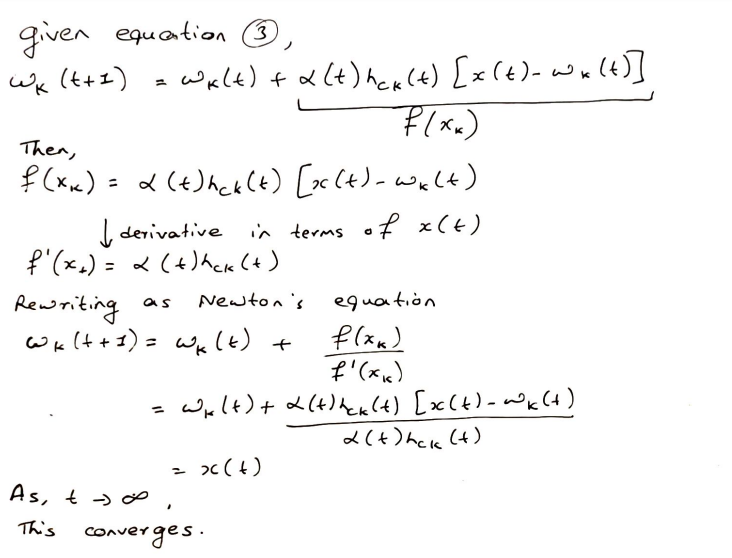 given equation ③,
ω_k (t+1) = ω_k(t) + α(t) h_ck(t) [x(t) - ω_k(t)]
f(x_k)
Then,
f(x_k) = α(t) h_ck(t) [x(t) - ω_k(t)
↓ derivative in terms of x(t)
f'(x_t) = α(t) h_ck(t)
Rewriting as Newton's equation
ω_k (t+1) = ω_k(t) + f(x_k) / f'(x_k)
= ω_k(t) + α(t) h_ck(t) [x(t) - ω_k(t) / α(t) h_ck(t)
= x(t)
As, t → ∞,
This converges.